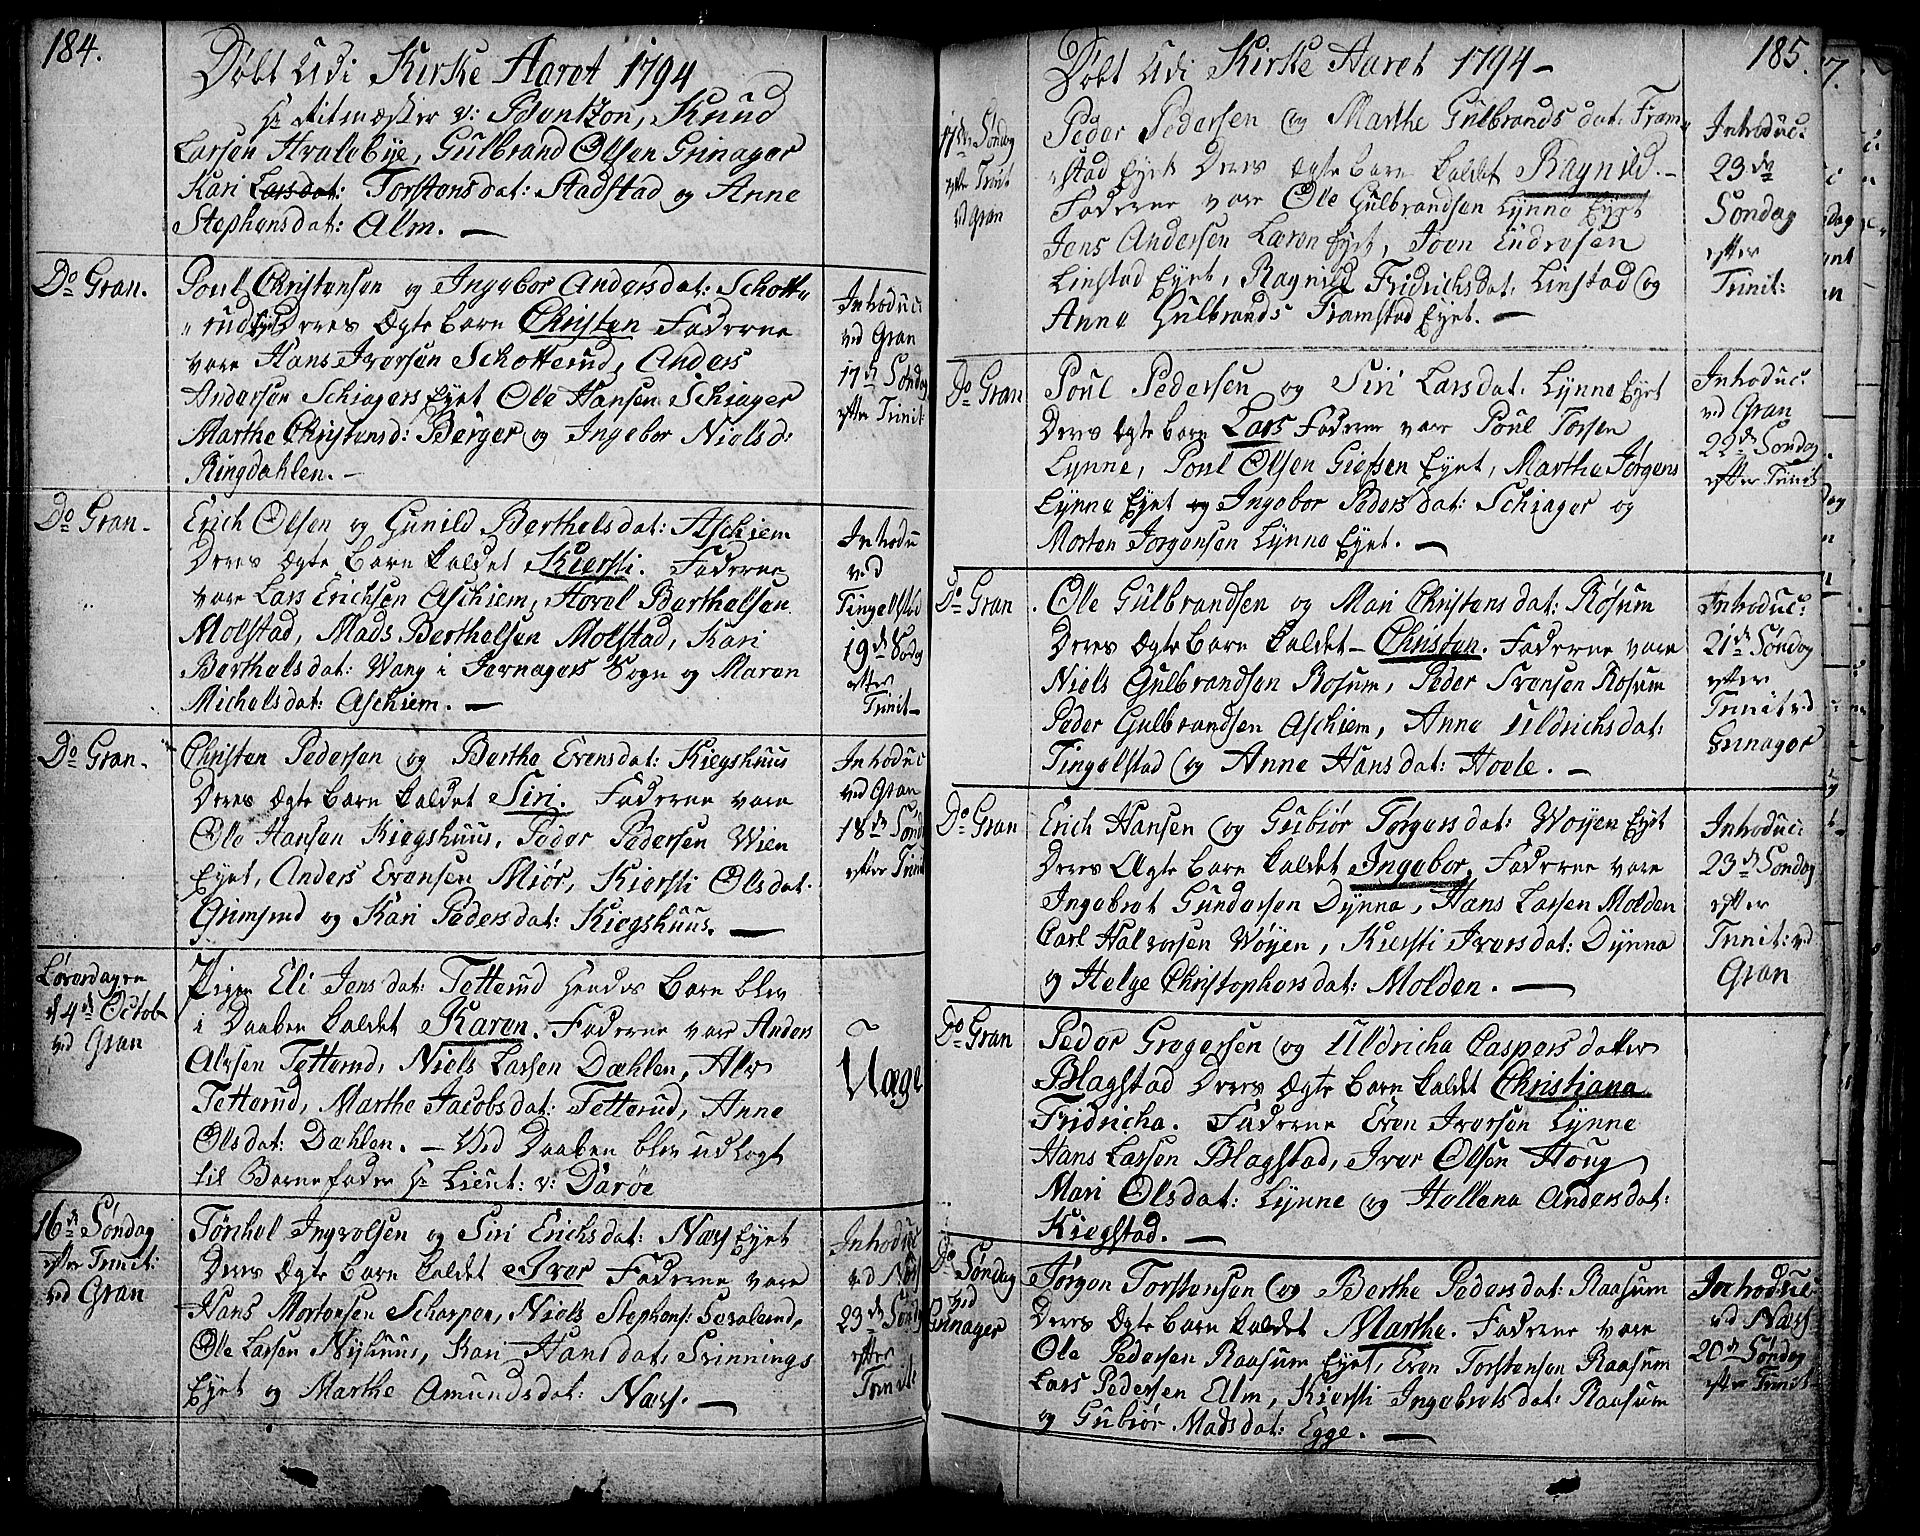 184.
Døbt Udi Kirke Aaret 1794
Hr Ritmæster v: Bentzon, Knud
Larsen Hvalebye, Gulbrand Olsen Grinager
Kari Larsdat: Torstensdat: Stadstad og Anne
Stephensdat: Alm. —
Do Gran.
Poull Christensen og Ingebor Andersdat: Schotte
rud Eyet Deres Ægte barn Christen Faderne
vare Hans Iversen Schotterud, Anders
Andersen Schiagers Eyet Ole Hansen Schiager
Marthe Christensd: Berger og Ingebor Nielsd:
Ringdahlen. —
Introduc:
ved Gran
17de Søndag
efter Trinit:
Do Gran.
Erich Olsen og Gunild Berthelsdat: Aschiem
Deres Ægte barn kaldet Kiersti. Faderne
vare Lars Erichsen Aschiem, Hovel Berthelsen
Molstad, Mads Berthelsen Molstad, Kari
Berthelsdat: Wang i Jevnagers Sogn og Maren
Michelsdat: Aschiem. —
Introdu
ved
Tingelsted
19de Sødag
efter
Trinit
Do Gran.
Christen Pedersen og Berthe Evensdat: Kiegshuus
Deres Ægte barn kaldet Siri. Faderne vare
Ole Hansen Kiegshuus, Peder Pedersen Wien
Eyet, Anders Evensen Miør, Kiersti Olsdat:
Grimsrud og Kari Pedersdat: Kiegshuus. —
Introduc
ved Gran
18de Sønd
efter Trinit
Løverdagen
d 4de Octob
ved Gran
Pigen Eli Jensdat: Tetterud hendes barn blev
i Daaben kaldet Karen. Faderne vare Anders
Alvsen Tetterud, Niels Larsen Dæhlen, Alv
Tetterud, Marthe Jacobsdat: Tetterud, Anne
Olsdat: Dæhlen. — Ved Daaben blev udlagt
til Barnefader Hr Lieut: v: Darøe
Uægte
16de Søndag
efter Trinit:
ved Gran
Torchel Ingvolsen og Siri Erichsdat: Næss Eyet
Deres Ægte barn kaldet Iver Faderne vare
Hans Mortensen Scharpen, Niels Stephens:
Ole Larsen Nyhuus, Kari Hansdat: Svinnings
Eyet og Marthe Amundsdat: Næss. —
Introduc
ved Næs
23de Sønd
efter
Trinit:
185.
Døbt Udi Kirke Aaret 1794 —
17de Søndag
efter Trinit
ved Gran
Peder Pedersen og Marthe Gulbrandsdat: Fram
stad Eyet Deres Ægte barn kaldet Ragnild. —
Faderne vare Ole Gulbrandsen Lynne Eyet
Jens Andersen Læren Eyet, Joen Endresen
Linstad Eyet, Ragnild Fridrichsdat: Linstad og
Anne Gulbrands Framstad Eyet. —
Introduc:
23de
Søndag
efter
Trinit:
Do Gran
Poul Pedersen og Siri Larsdat: Lynne Eyet
Deres Ægte barn Lars Faderne vare Poul Torsen
Lynne, Poul Olsen Giefsen Eyet, Marthe Jørgens
Lynne Eyet og Ingebor Pedersdat: Schiager og
Morten Jorgensen Lynne Eyet. —
Introduc:
ved Gran
22de Søndag
efter Trinit
Do Gran
Ole Gulbrandsen og Mari Christensdat: Røsum
Deres Ægte barn kaldet — Christen. Faderne vare
Niels Gulbrandsen Rosum, Peder Svensen Rosum
Peder Gulbrandsen Aschiem, Anne Uldrichsdat:
Tingelstad og Anne Hansdat: Hoele. —
Introduc:
21de Søndag
efter
Trinit ved
Grinager
Do Gran
Erich Hansen og Gubiør Torgersdat: Woyen Eyet
Deres Ægte barn kaldet Ingebor, Faderne vare
Ingebret Gundersen Dynna, Hans Larsen Molden
Carl Halvorsen Wøyen, Kiersti Iversdat: Dynna
og Helge Christophersdat: Molden. —
Introduc:
23de Søndag
efter
Trinit: ved
Gran
Do Gran
Peder Gregersen og Uldricha Caspersdatter
Blagstad Deres Ægte barn kaldet Christiana
Fridricha. Faderne Even Iversen Lynne
Hans Larsen Blagstad, Iver Olsen Houg
Mari Olsdat: Lynne og Hellena Andersdat:
Kiegstad. —
Do Søndag
ved
Grinager
Jørgen Torstensen og Berthe Pedersdat: Raasum
Deres Ægte barn kaldet Marthe. Faderne vare
Ole Pedersen Raasum Eyet, Even Torstensen Raasum
Lars Pedersen Alm, Kiersti Ingebretsdat: Raasum
og Gubiør Madsdat: Egge. —
Introduc
ved Næss
20de Søndag
efter Trinit